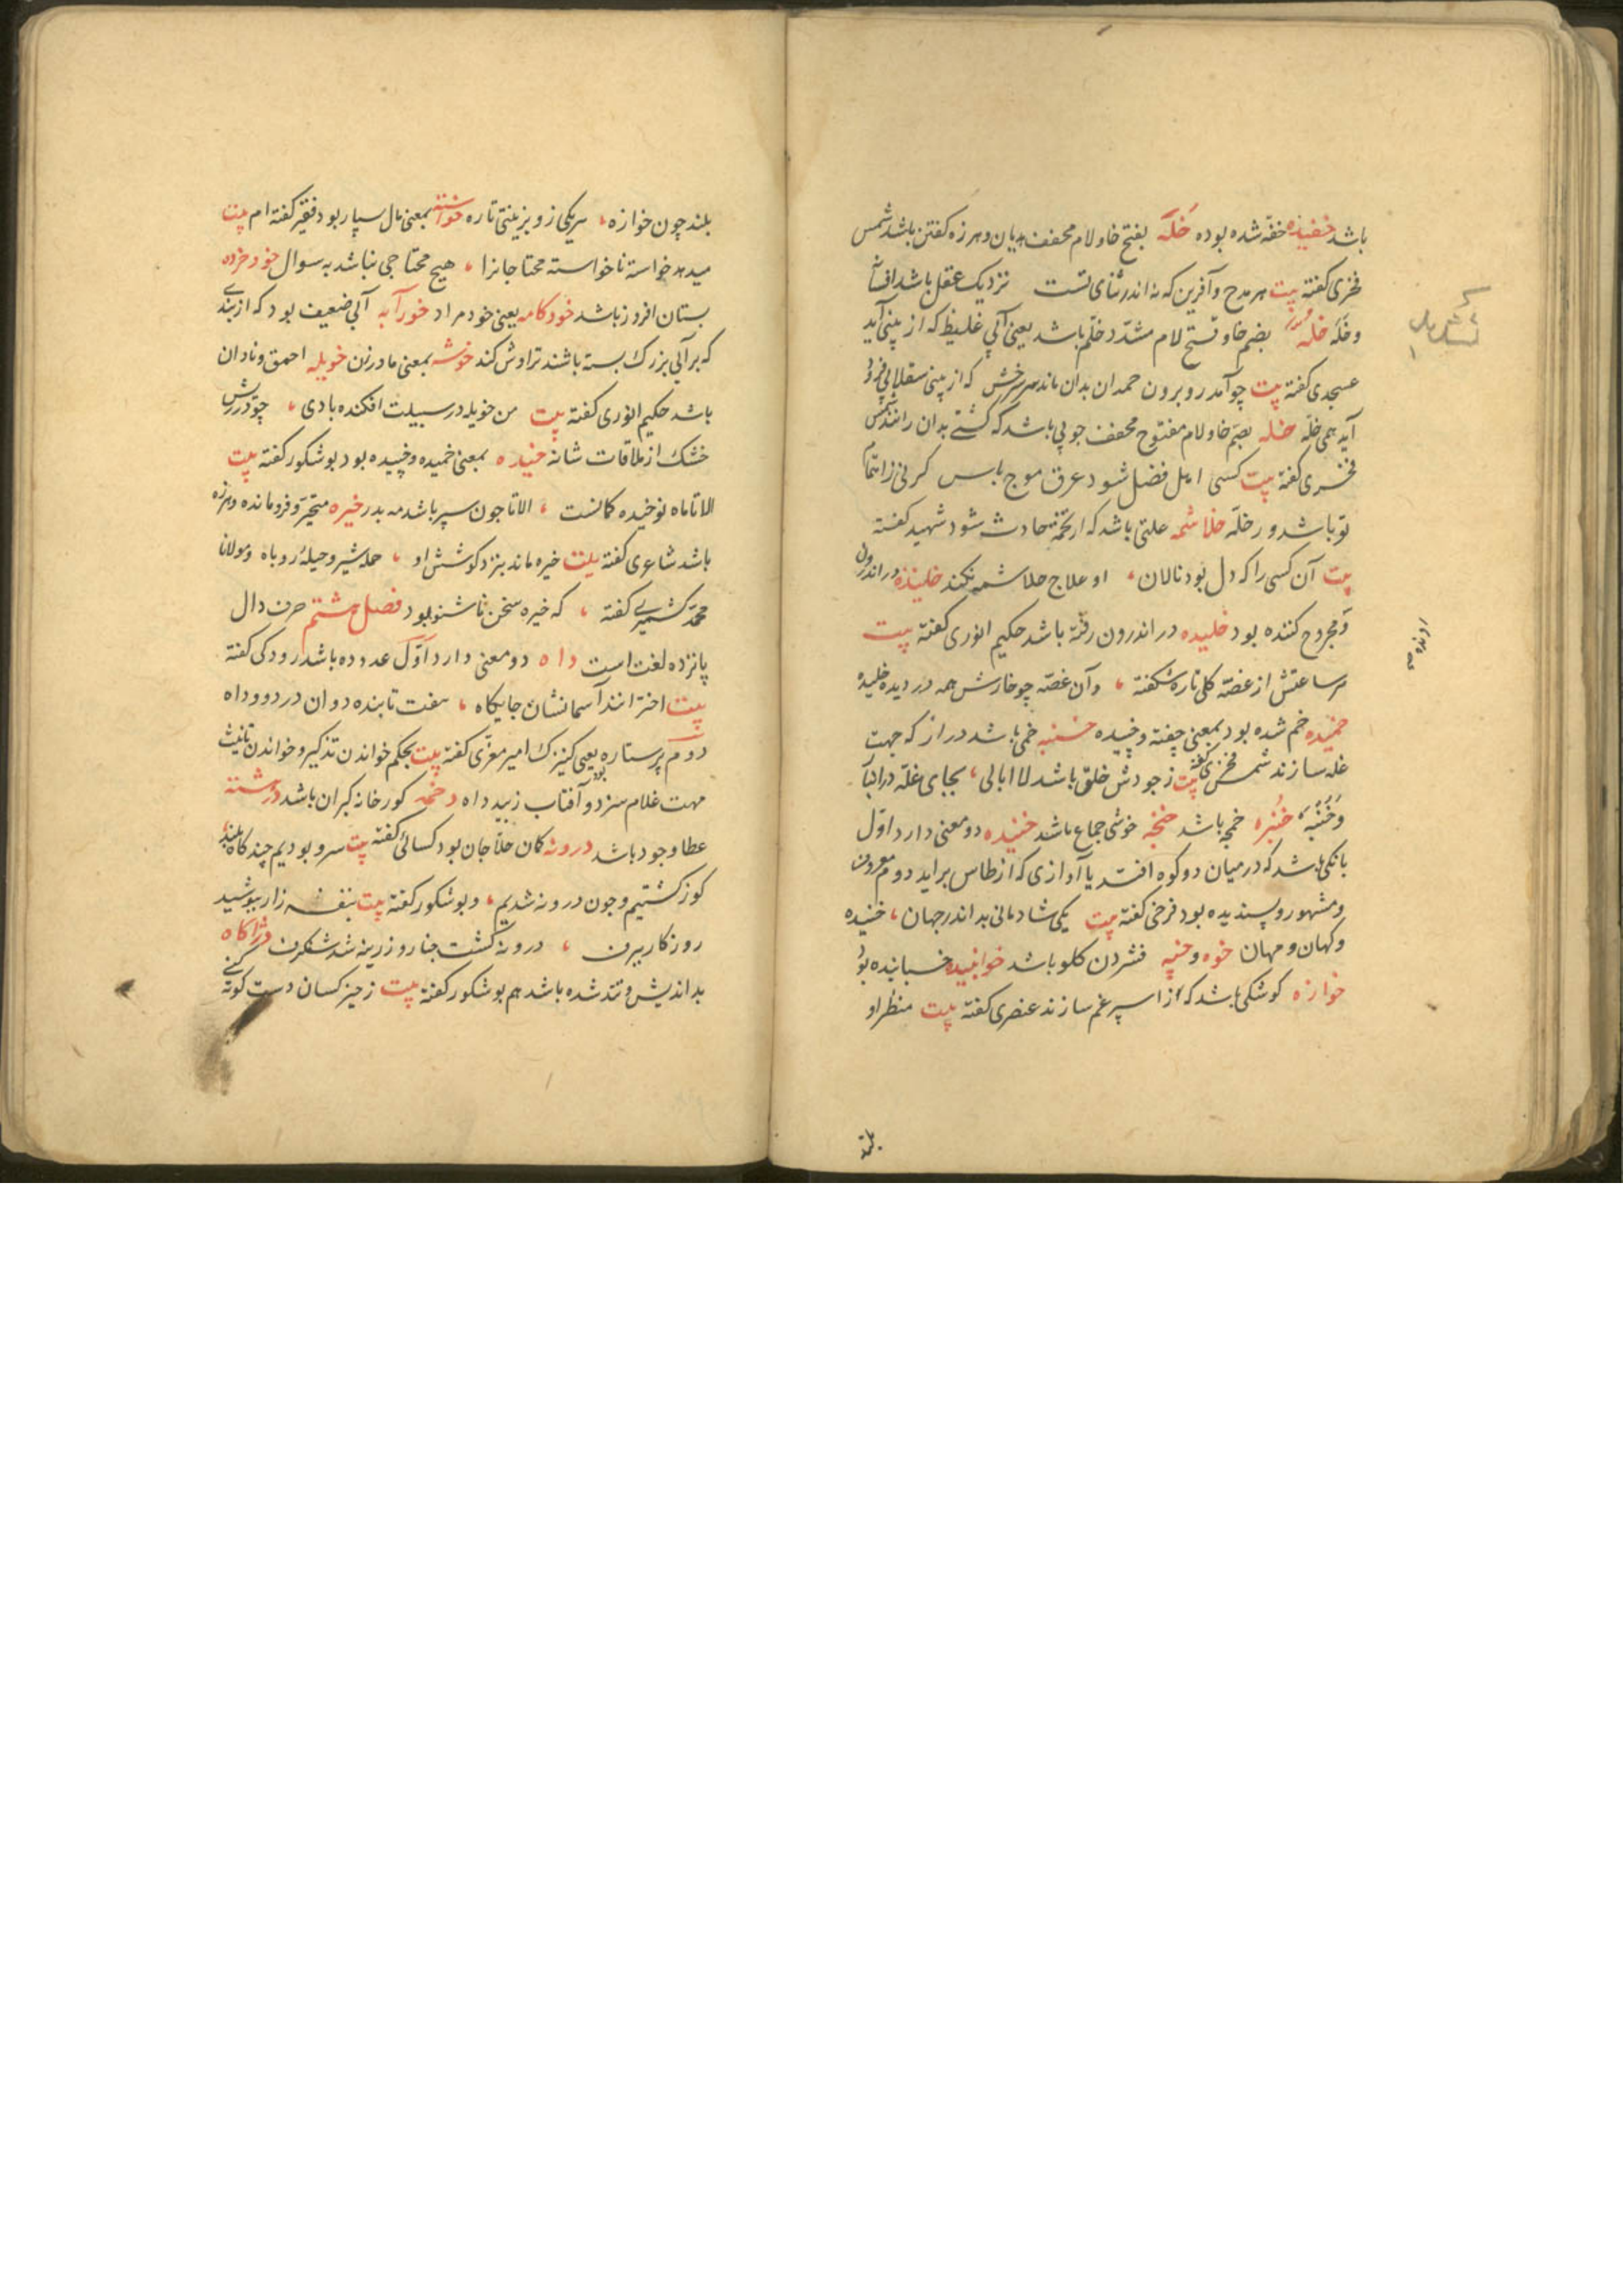 باشد خفیده خفه شده بوده خَلَه بفتح خا و لام مخفف هذیان و هرزه کفتن باشد شمس
فخری کفته بیت هر مدح و آفرین که نه اندر ثنای تست نزدیک عقل باشد افسانه
و خَلَه خله بضم خا و فتح لام مشدد خلم باشد یعنی آبی غلیظ که از بینی آید
عسجدی کفته بیت چو آمد رو برون حمدان بدان ماند سر سرخش که از بینی سقلابی فرود
آید همی خلّه خله بضم خا و لام مفتوح مخفف چوبی باشد که کشتی بدان رانند شمس
فخری کفته بیت کسی اهل فضل شود غرق موج باس کر نی ز اهتمام
تو باشد ورا خله خلاشمه علتی باشد که از تخمه حادث شود شهید کفته
بیت آن کسی را که دل بود نالان او علاج خلاشمه نکند خلیده در اندرون
و مجروح کننده بود خلیده در اندرون رفته باشد حکیم انوری کفته بیت
هر ساعتش از غصه کلی تازه شکفته وآن غصه چو خارش همه در دیده خلیده
خمیده خم شده بود بمعنی چفته و خپیده خنبه خمی باشد دراز که جهت
غله سازند شمس فخری کفته بیت ز جودش خلق باشد لاابالی بجای غله در انبار
و خُنبَه خنبره خمچه باشد خنجه خوشی جماع باشد خنیده دو معنی دارد اول
بانکی باشد که در میان دو کوه افتد یا آوازی که از طاس براید دوم معروف
و مشهور و پسندیده بود فرخی کفته بیت یکی شادمانی بد اندر جهان خنیده
و کهان و مهان خوه و خپه فشردن کلو باشد خوابنیده خسبانیده بود
خوازه کوشکی باشد که از اسپرغم سازند عنصری کفته بیت منظر او
بلند چون خوازه هر یکی زو بزینتی تازه خواسته بمعنی مال بسیار بود فقیر کفته ام بیت
میدهد خواسته ناخواسته محتاجانرا هیچ محتاجی نباشد به سوال خود خرده
بستان افروز باشد خودکامه یعنی خود مراد خورآبه آبی ضعیف بود که از بندی
که بر آبی بزرک بسته باشند تراوش کند خوشه بمعنی مادر زن خویله احمق و نادان
باشد حکیم انوری کفته بیت من خویله در سبیلت افکنده بادی چو در ریش
خشک از ملاقات شانه خیده بمعنی خمیده و خپیده بود بوشکور کفته بیت
الا تا ماه نو خیده کمانست الا تا چون سپر باشد مه بدر خیره متحیر و فرومانده و هرزه
باشد شاعری کفته بیت خیره ماند بنزد کوشش او حمله شیر و حیله روباه و مولانا
محمد کشمیری کفته که خیره سخن ناشنو بود فصل هشتم حرف دال
پانزده لغت است داه دو معنی دارد اوّل عدد ده باشد رودکی کفته
بیت اخترانند آسمانشان جایکاه هفت تابنده دوان در دو و داه
دوم پرستاره یعنی کنیزک بود امیر معزی کفته بیت بحکم خواندن تذکیر و خواندن تانیث
مهت غلام سزد و آفتاب زیبد داه دخمه کورخانه کبران باشد درشته
عطا و جود باشد درونه کمان حلاجان بود کسائی کفته بیت سرو بودیم چند کاه بلند
کوز کشتیم و چون درونه شدیم و بوشکور کفته بیت بنفشه زار بپوشید
روزکار ببرف درونه کشت چنار و زریر شد شنکرف دژآکاه
بداندیش و تند شده باشد هم بوشکور کفته بیت ز چیز کسان دست کوته کنی